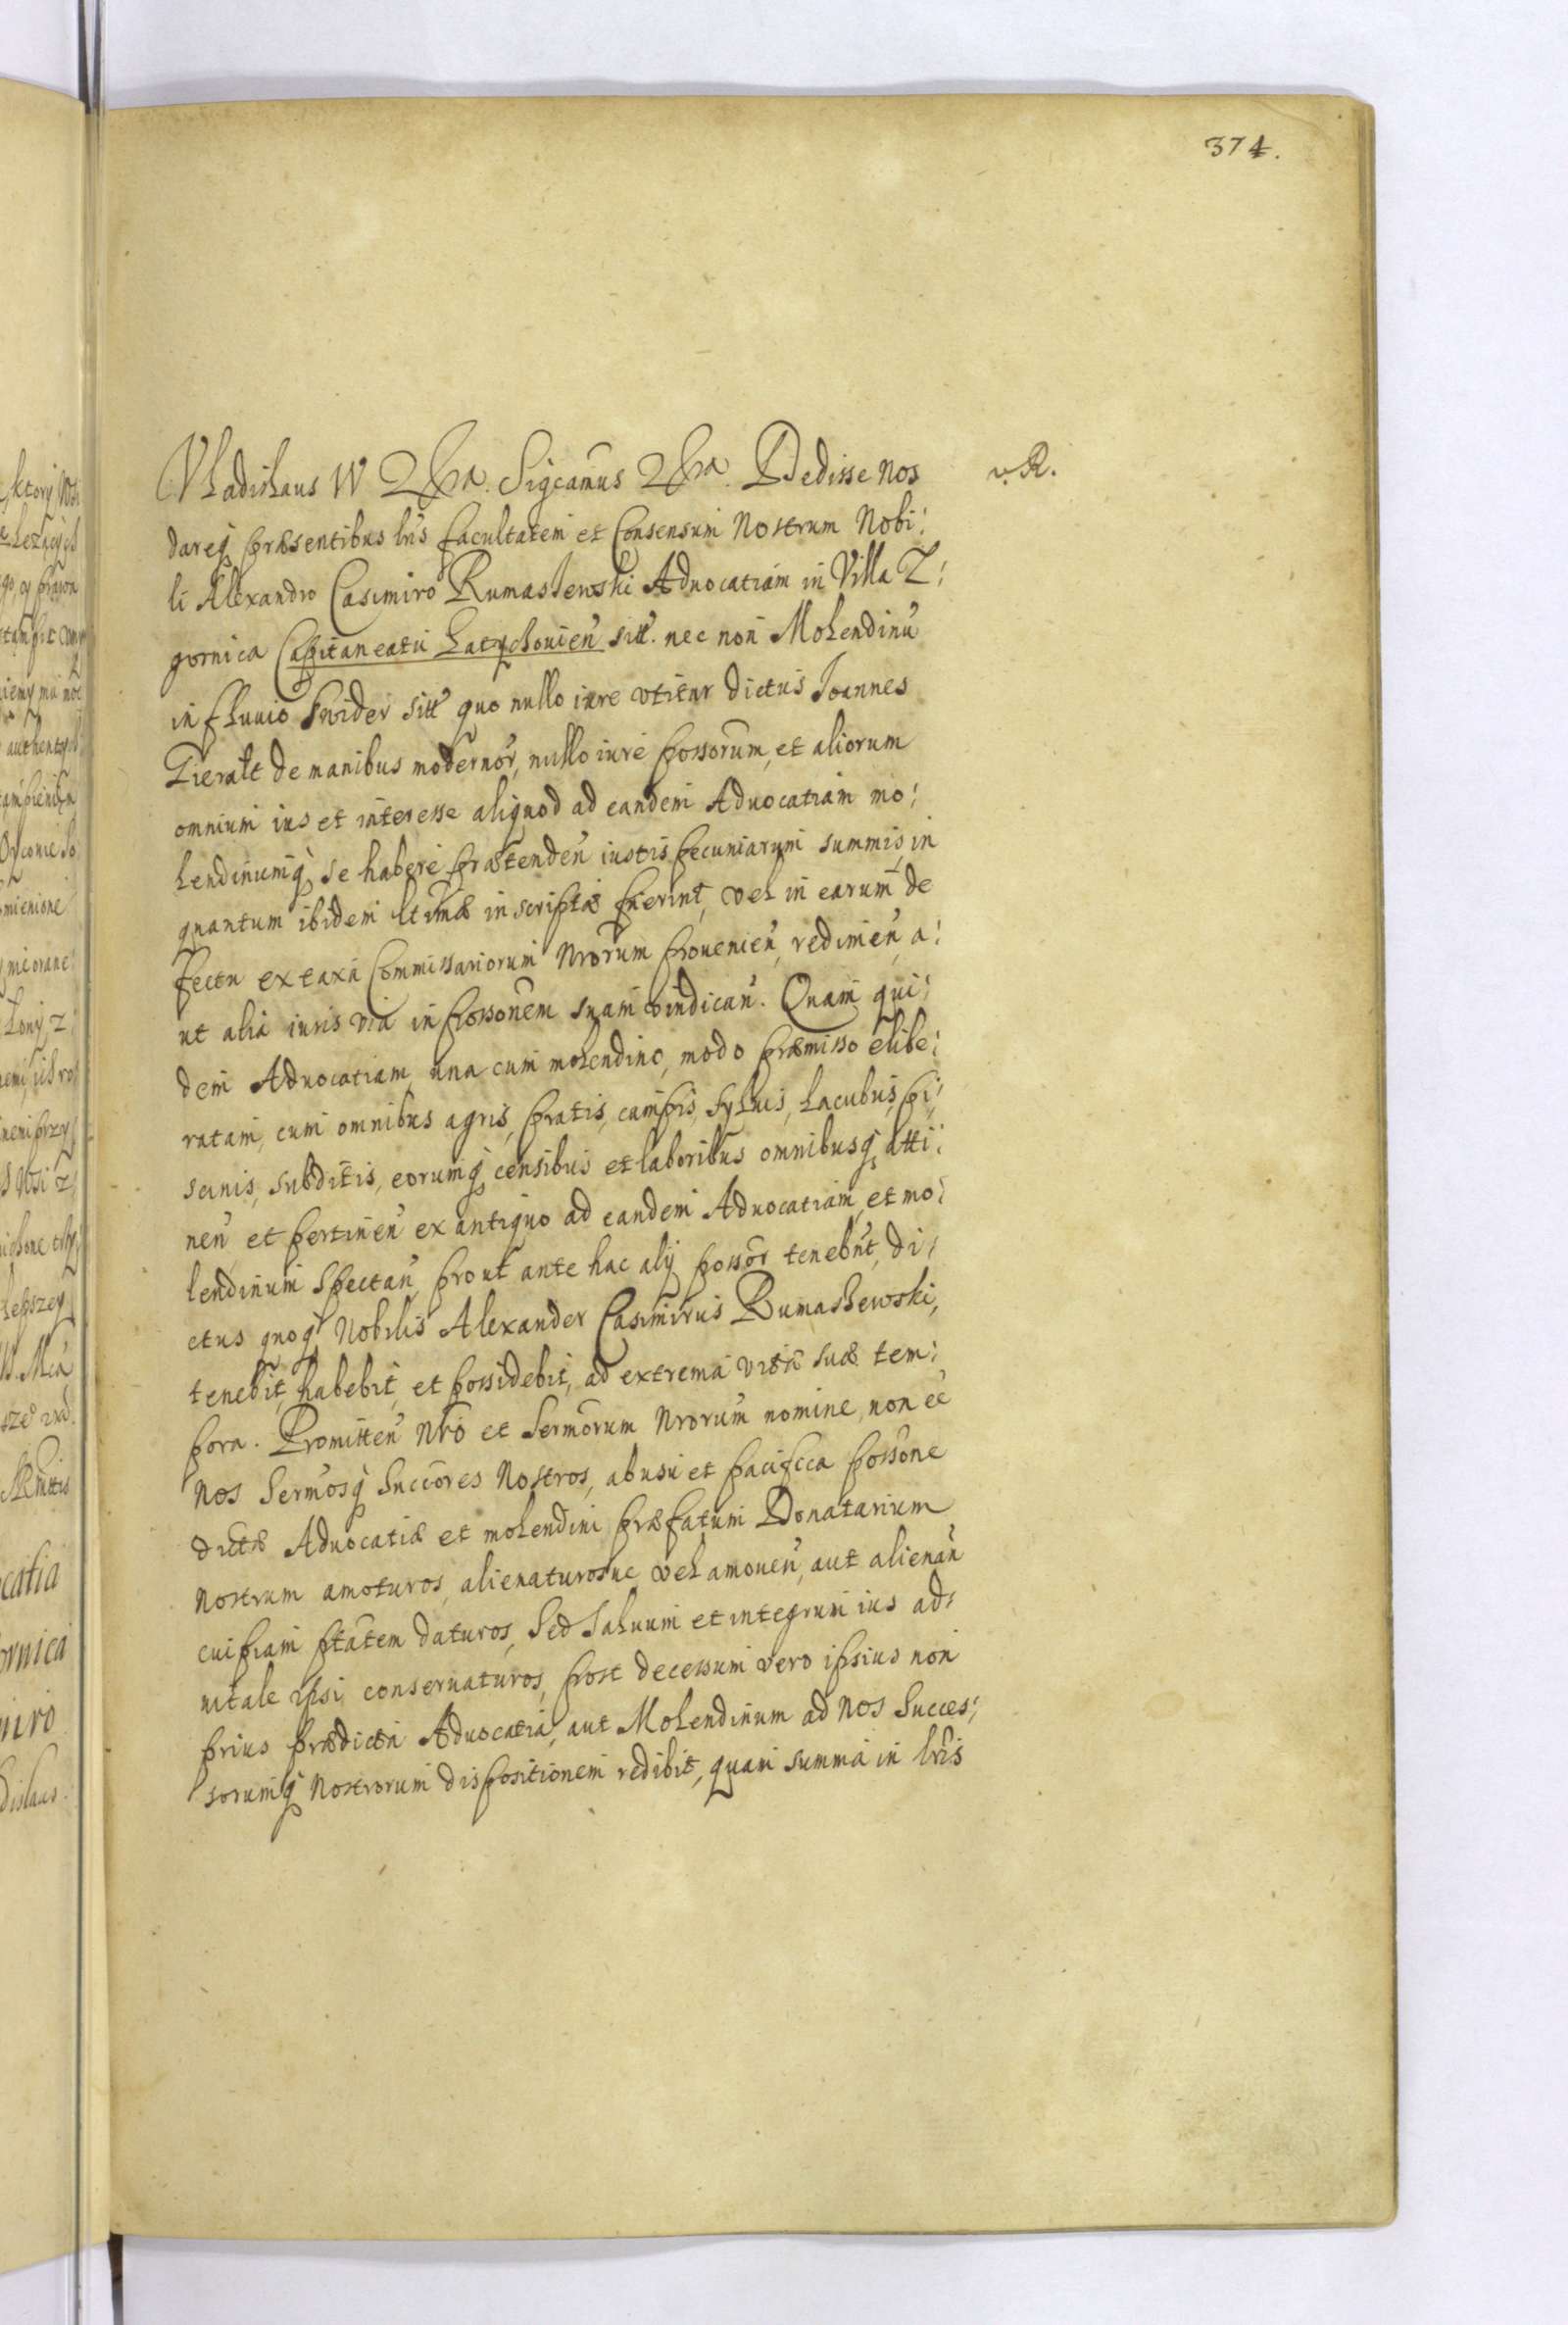 374.
Vladislaus IV &c̃a. Sigcamus &c̃a. Dedisse nos
v. R.
dareq præsentibus lris facultatem et Consensum Nostrum Nobi:
li Alexandro Casimiro Rumaszewski Aduocatiam in Villa Z:
gornica Capitaneatu Latychouien sitt. nec non Molendinu
in fluuio Swider sitt quo nullo iure vtitur dictus Joannes
Tieralt de manibus modernor, nullo iure possorum, et aliorum
omnium ius et interesse aliquod ad eandem Aduocatiam mo:
lendinumq se habere prætenden iustis pecuniarum summis, in
quantum ibidem ltimæ inscriptæ fuerint, vel in earum de
fectu ex taxa Commissariorum Nrorum prouenien, redimen, a:
ut alia iuris via in possonem suam vindican. Quam qui:
dem Aduocatiam, una cum molendino, modo præmisso elibe:
ratam, cum omnibus agris, pratis, campis, syluis, lacubus, pi:
scinis, subditis, eorumq censibus et laboribus omnibusq atti:
nen et pertinen ex antiquo ad eandem Aduocatiam, et mo:
lendinum spectan, prout ante hac alij possor tenebnt, di:
ctus quoq Nobilis Alexander Casimirus Rumaszewski,
tenebit, habebit, et possidebit, ad extrema vitæ suæ tem:
pora. Promitten Nro et Sermorum Nrorum nomine, non ee
nos Sermosq Succores Nostros, ab usu et pacifica possone
dictæ Aduocatiæ et molendini præfatum Donatarium
nostrum amoturos, alienaturosue vel amouen, aut alienan
cuipiam ptatem daturos, Sed saluum et integrum ius ad:
uitale ipsi conseruaturos, post decessum vero ipsius non
prius prædicta Aduocatia, aut Molendinum ad nos Succes:
sorumq nostrorum dispositionem redibit, quam summa in lris